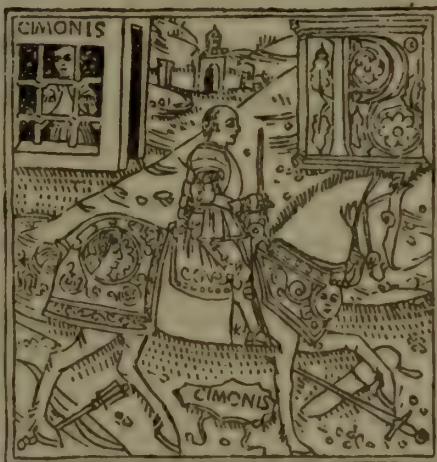 CIMONIS
P
CIMONIS